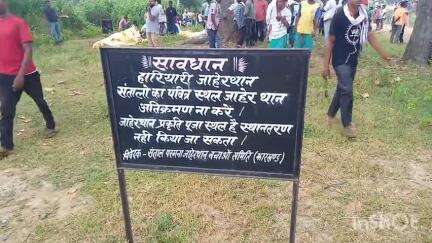 सावधान
हरियारी जाहेरथान
संतालों का पवित्र स्थल जाहेर थान
अतिक्रमण ना करे।
जाहेरथान प्रकृति पूजा स्थल है स्थानतरण
नहीं किया जा सकता।
निवेदक - संताल परगना जाहेरथान बचाओ समिति (झारखण्ड)
InShOt